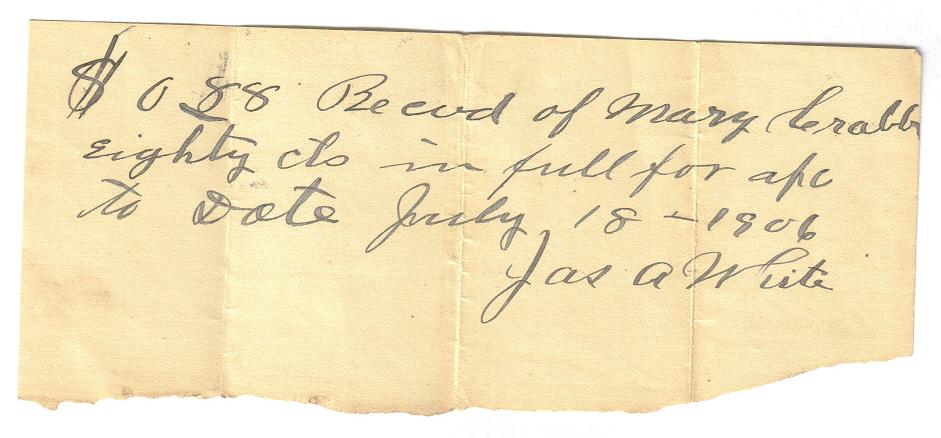 $ 0 88 Recvd of Mary Crabb
Eighty cts in full for a/c
to Date July 18 - 1906
Jas A White